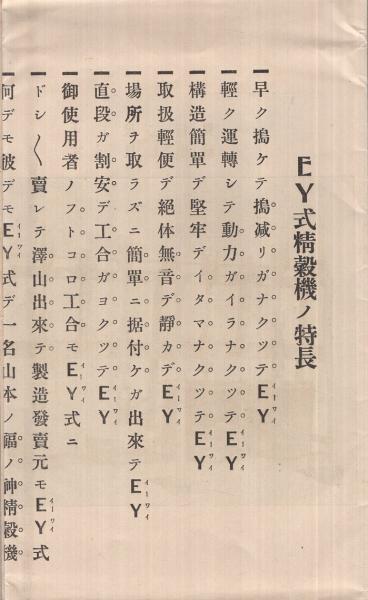 EY式精穀機ノ特長
一早ク搗ケテ搗減リガナクツテEY
一輕ク運轉シテ動力ガイラナクツテEY
一構造簡單デ堅牢デイタマナクツテEY
一取扱輕便デ絶体無音デ靜カデEY
一場所ヲ取ラズニ簡單ニ据付ケガ出來テEY
一直段ガ割安デ工合ガヨクツテEY
一御使用者ノフトコロ工合モEY式ニ
一ドシ〱賣レテ澤山出來テ製造發賣元モEY式
一何デモ彼デモEY式デ一名山本ノ福ノ神精穀機